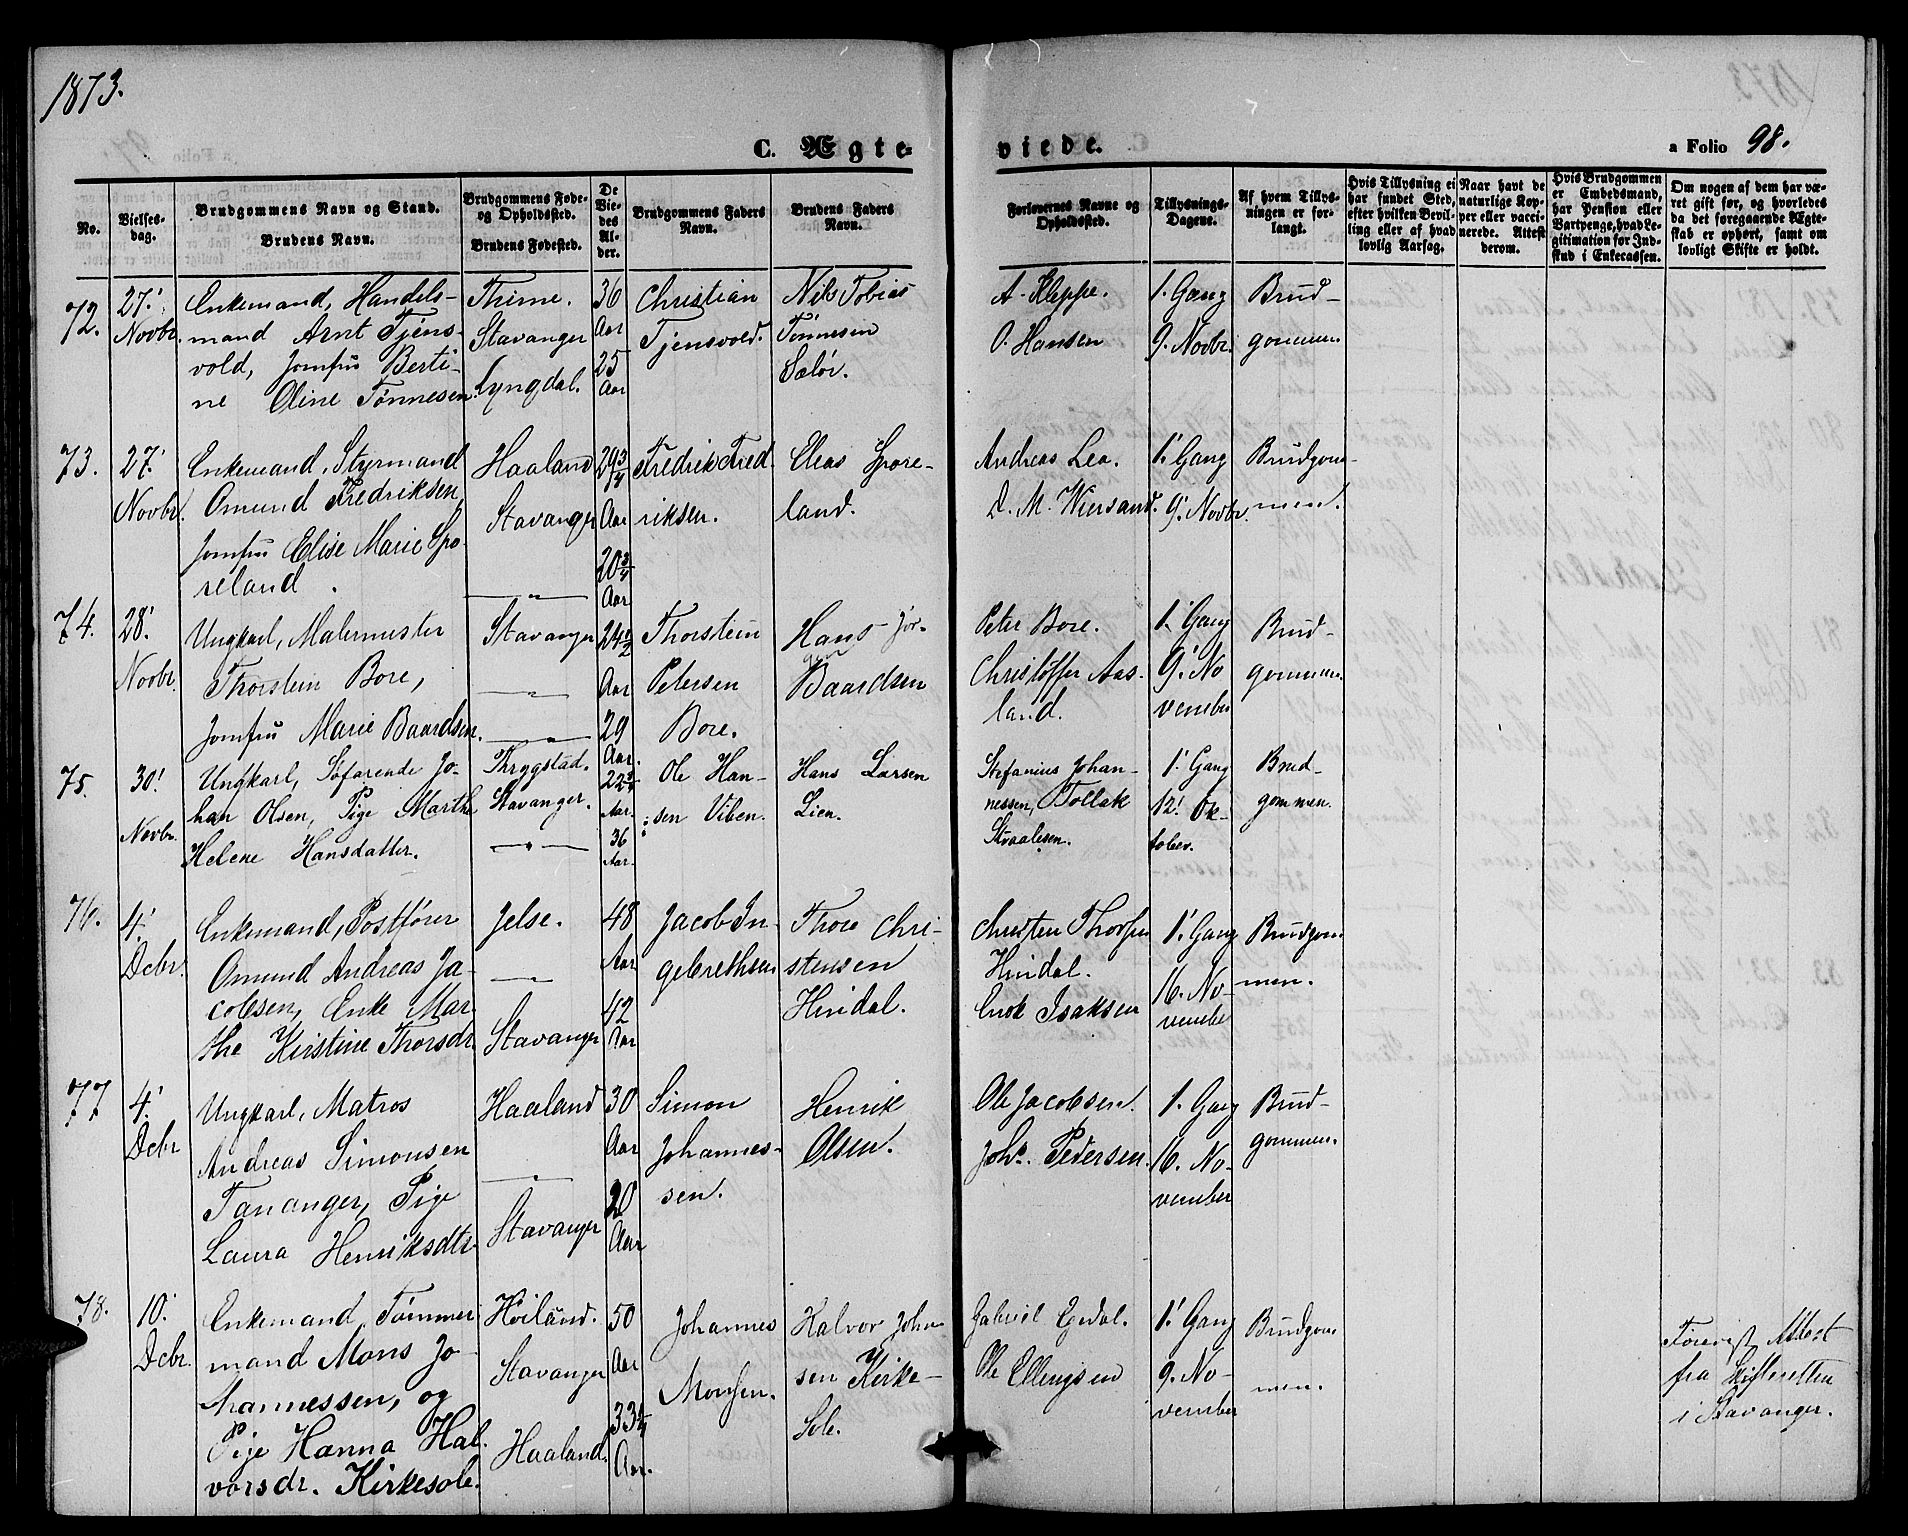 1873.
C. Ægte-
viede.
a Folio 98.
No.
Vielses-
dag.
Brudgommens Navn og Stand.
Brudens Navn.
Brudgommens Føde-
og Opholdssted.
Brudens Fødested.
De
Vie-
des
Al-
der.
Brudgommens Faders
Navn.
Brudens Faders
Navn.
Forlovernes Navne og
Opholdssted.
Tillysnings-
Dagene.
Af hvem Tillys-
ningen er for-
langt.
Hvis Tillysning ei
har fundet Sted,
efter hvilken Bevil-
ling eller af hvad
lovlig Aarsag.
Naar havt de
naturlige Kop-
per eller vacci-
nerede. Attest
derom.
Hvis Brudgommen
er Embedsmand,
har Pension eller
Vartpenge, hvad Le-
gitimation for Ind-
skud i Enkecassen.
Om nogen af dem har væ-
ret gift før, og hvorledes
da det foregaaende Ægte-
skab er ophørt, samt om
lovligt Skifte er holdt.
72.
27'
Novbr.
Enkemand, Handels-
mand Arnt Tjens-
vold, Jomfru Berti-
ne Oline Tønnesen.
Thime.
Stavanger
Lyngdal.
36
Aar
25
Aar
Christian
Tjensvold.
Nils Tobias
Tønnesen
Sælør.
A. Kleppe.
O. Hansen
1. Gang
9. Novbr.
Brud-
gommen.
73.
27.'
Novbr.
Enkemand, Styrmand
Omund Fredriksen,
Jomfru Elise Marie Spo-
reland.
Haaland
Stavanger
— „ —
29 3/4
Aar
20 3/4
Aar
Fredrik Fred-
riksen.
Elias Spore-
land.
Andreas Lea.
D. M. Wiersand.
1.' Gang
9.' Novbr.
Brudgom-
men.
74.
28.'
Novbr.
Ungkarl, Malermester
Thorstein Bore,
Jomfru Marie Baardsen.
Stavanger
— „ —
— „ —
24 1/2
Aar
29
Aar.
Thorstein
Petersen
Bore.
Hans Jør-
gen
Baardsen
Peter Bore.
Christoffer Aas-
land.
1.' Gang
9.' No
vember
Brud-
gommen.
75.
30.'
Novbr.
Ungkarl, Søfarende Jo-
han Olsen, Pige Marthe
Helene Hansdatter.
Thrygstad.
Stavanger.
— „ —
Aar.
36
Aar.
Ole Han-
sen Viben.
Hans Larsen
Lien.
Stefanius Johan-
nessen, Tollak
Straalesen.
1.' Gang
12.' Ok-
tober.
Brud-
gommen.
76.
4.'
Dcbr.
Enkemand, Postfører
Omund Andreas Ja-
cobsen, Enke Mar-
the Kirstine Thorsdr.
Jelse.
— „ —
Stavanger
48
Aar
42
Aar
Jacob In-
gebrethsen
Thore Chri-
stensen
Hindal.
Christen Thorsen
Hindal.
Enok Isaksen
1.' Gang
16. No-
vember
Brudgom-
men.
77
4.'
Dcbr
Ungkarl, Matros
Andreas Simonsen
Tananger, Pige
Laura Henriksdtr.
Haaland
— „ —
Stavanger
30
Aar
20
Aar
Simon
Johannes-
sen.
Henrik
Olsen.
Ole Jacobsen.
Johs. Pedersen.
1. Gang
16. No-
vember
Brud-
gommen.
78.
10.'
Dcbr.
Enkemand, Tømmer
mand Mons Jo-
hannessen, og
Pige Hanna Hal-
vorsdr. Kirkesole.
Høiland.
Stavanger
Haaland.
50
Aar
33 1/4
Aar.
Johannes
Monsen.
Halvor John-
sen Kirke-
Sole.
Gabriel Egedal.
Ole Ellingsen
1.' Gang
9. No-
vember
Brudgom-
men.
Forevist Attest
fra Skifteretten
i Stavanger.